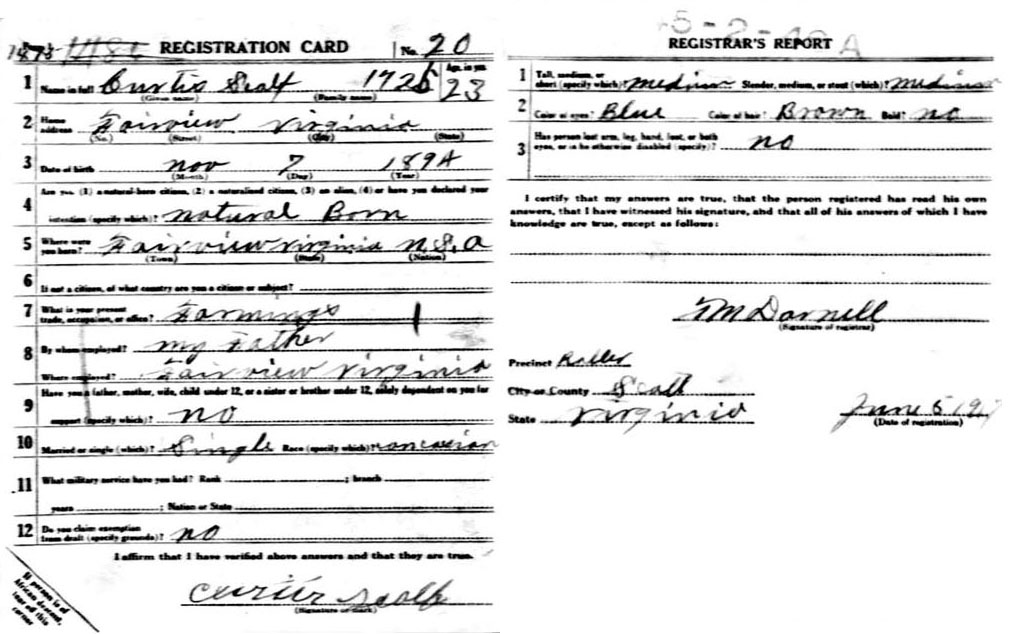 1878 REGISTRATION CARD No. 20
1 Name in full Curtis Scalf 1725 Age, in yrs. 23
(Given name) (Family name)
2 Home address Fairview Virginia
(No.) (Street) (City) (State)
3 Date of birth Nov 7 1894
(Month) (Day) (Year)
4 Are you (1) a natural-born citizen, (2) a naturalized citizen, (3) an alien, (4) or have you declared your
intention (specify which)? natural Born
5 Where were you born? Fairview Virginia U.S.a
(Town) (State) (Nation)
6 If not a citizen, of what country are you a citizen or subject?
7 What is your present trade, occupation, or office? Farming 1
8 By whom employed? my Father
Where employed? Fairview Virginia
9 Have you a father, mother, wife, child under 12, or a sister or brother under 12, solely dependent on you for
support (specify which)? no
10 Married or single (which)? Single Race (specify which)? Caucasian
11 What military service have you had? Rank ; branch
years ; Nation or State
12 Do you claim exemption from draft (specify grounds)? no
I affirm that I have verified above answers and that they are true.
Curtis Scalf
(Signature or mark)
If person is of
African descent,
tear off this
corner
REGISTRAR'S REPORT
1 Tall, medium, or short (specify which)? medium Slender, medium, or stout (which)? medium
2 Color of eyes? Blue Color of hair? Brown Bald? no
3 Has person lost arm, leg, hand, foot, or both
eyes, or is he otherwise disabled (specify)? no
I certify that my answers are true, that the person registered has read his own
answers, that I have witnessed his signature, and that all of his answers of which I have
knowledge are true, except as follows:
Darnell
(Signature of registrar)
Precinct
City or County Scott
State Virginia June 5 1917
(Date of registration)